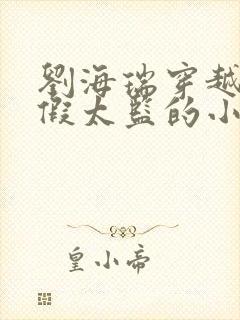 劉海瑞穿越
假太監的小
皇小帝